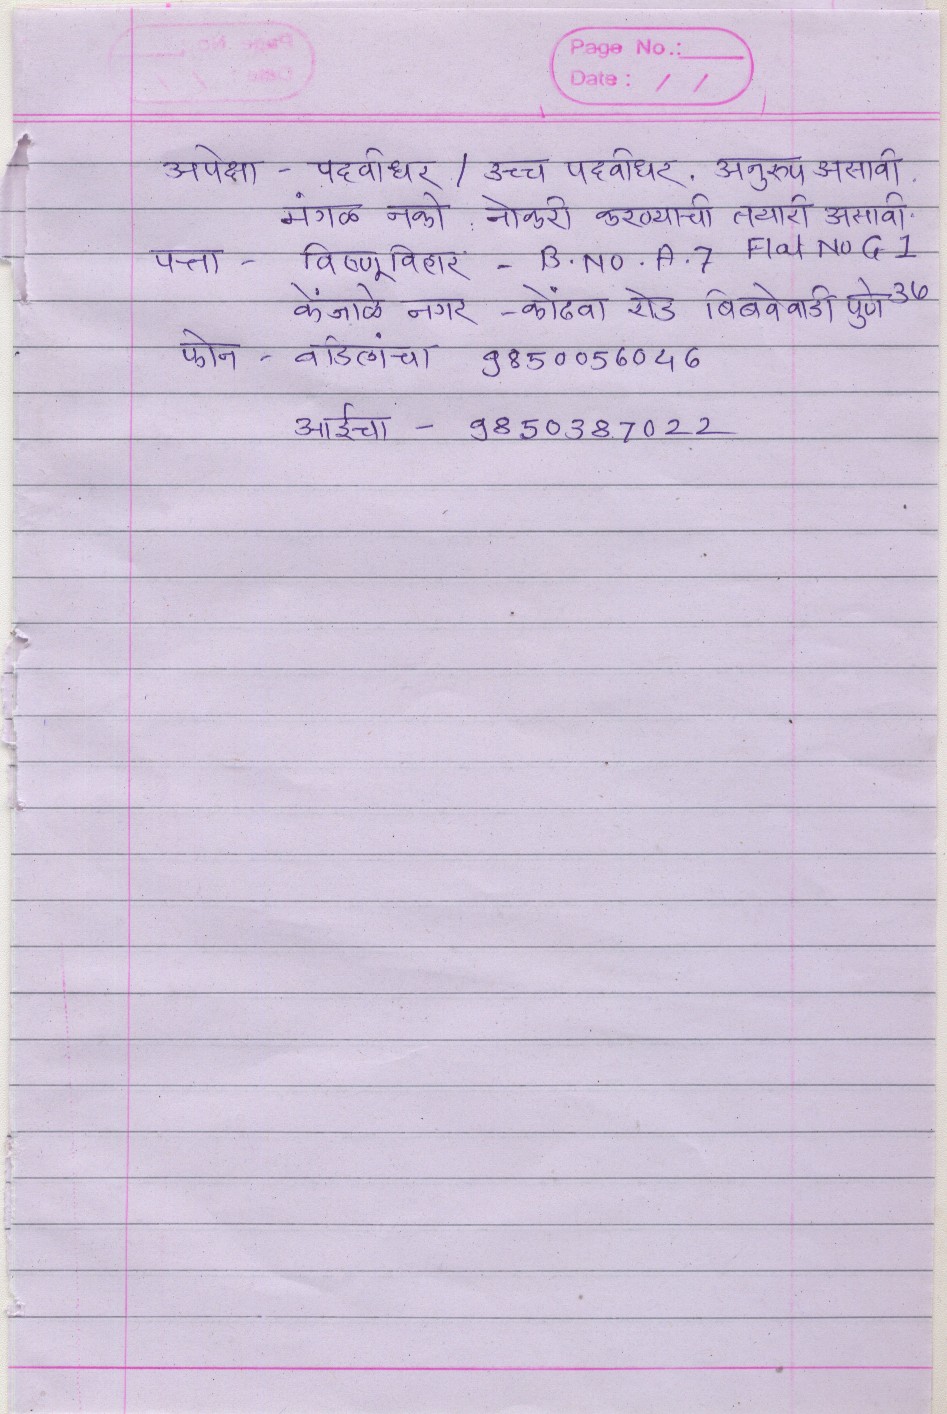 Page No.:
Date : / /
अपेक्षा - पदवीधर / उच्च पदवीधर. अनुरुप असावी.
मंगळ नको. नोकरी करण्याची तयारी असावी.
पत्ता - विष्णूविहार - B.NO.A.7 Flat No G 1
केंजाळे नगर - कोंढवा रोड बिबवेवाडी पुणे 36
फोन - वडिलांचा 9850056046
आईचा - 9850387022